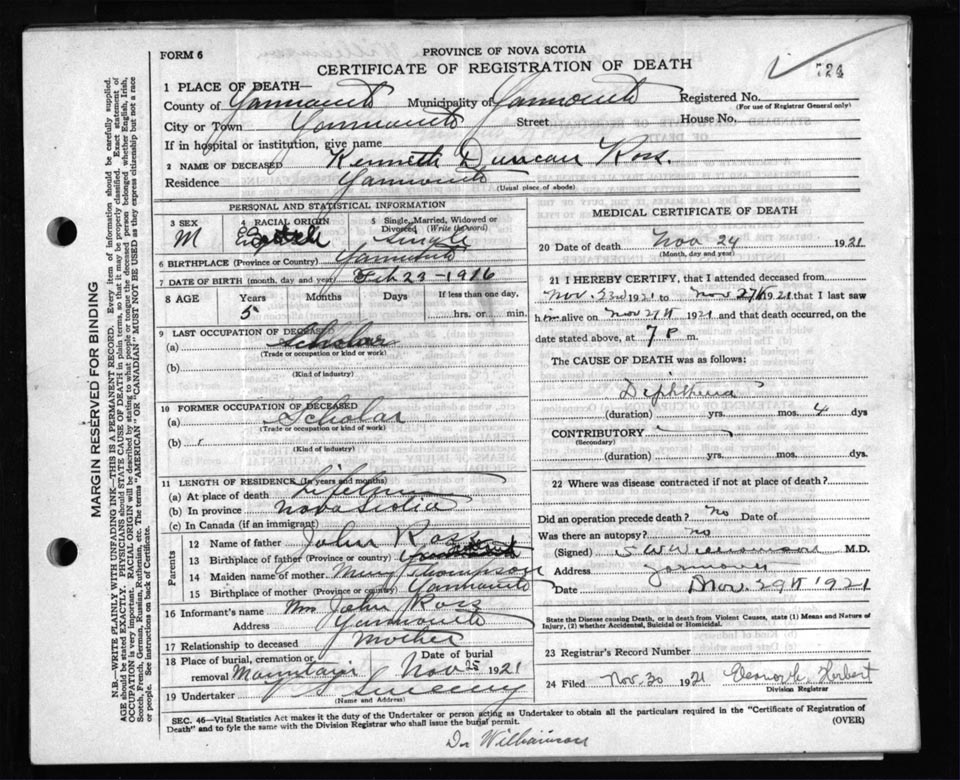 PROVINCE OF NOVA SCOTIA
FORM 6
CERTIFICATE OF REGISTRATION OF DEATH
724
1 PLACE OF DEATH—
County of Yarmouth Municipality of Yarmouth Registered No.
(For use of Registrar General only)
City or Town Yarmouth Street House No.
If in hospital or institution, give name
2 NAME OF DECEASED Kenneth Duncan Ross.
Residence Yarmouth
(Usual place of abode)
MARGIN RESERVED FOR BINDING
N.B.—WRITE PLAINLY WITH UNFADING INK—THIS IS A PERMANENT RECORD. Every item of information should be carefully supplied.
AGE should be stated EXACTLY. PHYSICIANS should STATE CAUSE OF DEATH in plain terms, so that it may be properly classified. Exact statement of
OCCUPATION is very important. RACIAL ORIGIN will be described by stating to what people or tongue the deceased person belonged whether English, Irish,
Scotch, French, German, Russian, Ruthenian, etc. The terms "AMERICAN" OR "CANADIAN" MUST NOT BE USED as they express citizenship but not a race
or people. See instructions on back of Certificate.
PERSONAL AND STATISTICAL INFORMATION
3 SEX
M
4 RACIAL ORIGIN
5 Single, Married, Widowed or
Divorced (Write the word)
Single
6 BIRTHPLACE (Province or Country) Yarmouth
7 DATE OF BIRTH (month, day and year) Feb 23-1916
8 AGE Years Months Days If less than one day,
5 hrs. or min.
9 LAST OCCUPATION OF DECEASED
(a) Scholar
(Trade or occupation or kind or work)
(b)
(Kind of industry)
10 FORMER OCCUPATION OF DECEASED
(a) Scholar
(Trade or occupation or kind of work)
(b)
(Kind of industry)
11 LENGTH OF RESIDENCE (In years and months)
(a) At place of death Lifetime
(b) In province Nova Scotia
(c) In Canada (if an immigrant)
Parents
12 Name of father John Ross
13 Birthplace of father (Province or country)
14 Maiden name of mother Thompson
15 Birthplace of mother (Province or country) Yarmouth
16 Informant's name Mrs John Ross
Address Yarmouth
17 Relationship to deceased Mother
18 Place of burial, cremation or removal Mountain Date of burial Nov 25 1921
19 Undertaker Sweeny
(Name and Address)
MEDICAL CERTIFICATE OF DEATH
20 Date of death Nov 24 1921
(Month, day and year)
21 I HEREBY CERTIFY, that I attended deceased from
Nov. 23rd 1921 to Nov 27th 1921 that I last saw
him alive on Nov 27th 1921 and that death occurred, on
date stated above, at 7 P m.
The CAUSE OF DEATH was as follows:
Diphtheria
(duration) yrs. mos. 4 dys
CONTRIBUTORY
(Secondary)
(duration) yrs. mos. dys.
22 Where was disease contracted if not at place of death?
Did an operation precede death? no Date of
Was there an autopsy? no
(Signed) S W Williamson M.D.
Address Yarmouth
Date Nov. 29th 1921
State the Disease causing Death, or in death from Violent Causes, state (1) Means and Nature of
Injury, (2) whether Accidental, Suicidal or Homicidal.
23 Registrar's Record Number
24 Filed Nov. 30 1921 Herbert
Division Registrar
SEC. 46—Vital Statistics Act makes it the duty of the Undertaker or person acting as Undertaker to obtain all the particulars required in the "Certificate of Registration of
Death" and to fyle the same with the Division Registrar who shall issue the burial permit.
(OVER)
Dr Williamson